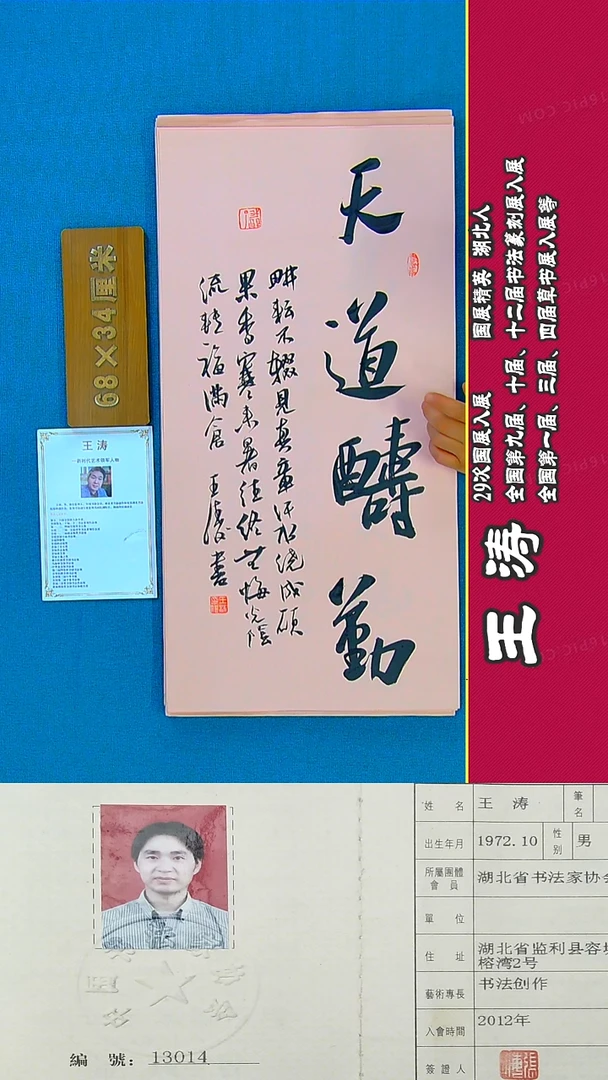 天道醻勤
耕耘不辍見真章汗水浇成硕
果香寒来暑往终无悔光陰
流转福满倉 王涛書
68×34厘米
王 涛
王涛
29次国展入展 国展精英 湖北人
全国第九届、十届、十二届书法篆刻展入展
全国第一届、三届、四届草书展入展等
編 號：13014
姓 名 王 涛 筆名
出生年月 1972.10 性别 男
所屬團體會員 湖北省书法家协会
單 位
住 址 湖北省监利县容城
榕湾2号
藝術專長 书法创作
入會時間 2012年
簽證人